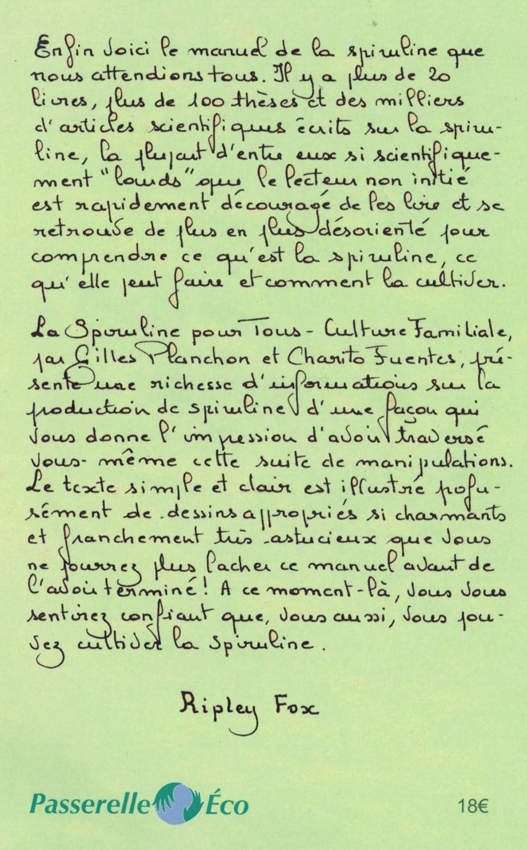 Enfin voici le manuel de la spiruline que
nous attendions tous. Il y a plus de 20
livres, plus de 100 thèses et des milliers
d'articles scientifiques écrits sur la spiru-
line, la plupart d'entre eux si scientifique-
ment "lourds" que le lecteur non initié
est rapidement découragé de les lire et se
retrouve de plus en plus désorienté pour
comprendre ce qu'est la spiruline, ce
qu'elle peut faire et comment la cultiver.
La Spiruline pour Tous - Culture Familiale,
par Gilles Planchon et Charito Fuentes, pré-
sente une richesse d'informations sur la
production de spiruline d'une façon qui
vous donne l'impression d'avoir traversé
vous-même cette suite de manipulations.
Le texte simple et clair est illustré profu-
sément de dessins appropriés si charmants
et franchement très astucieux que vous
ne pourrez plus lacher ce manuel avant de
l'avoir terminé! A ce moment-là, vous vous
sentirez confiant que, vous aussi, vous pou-
vez cultiver la spiruline.
Ripley Fox
Passerelle Éco
18€